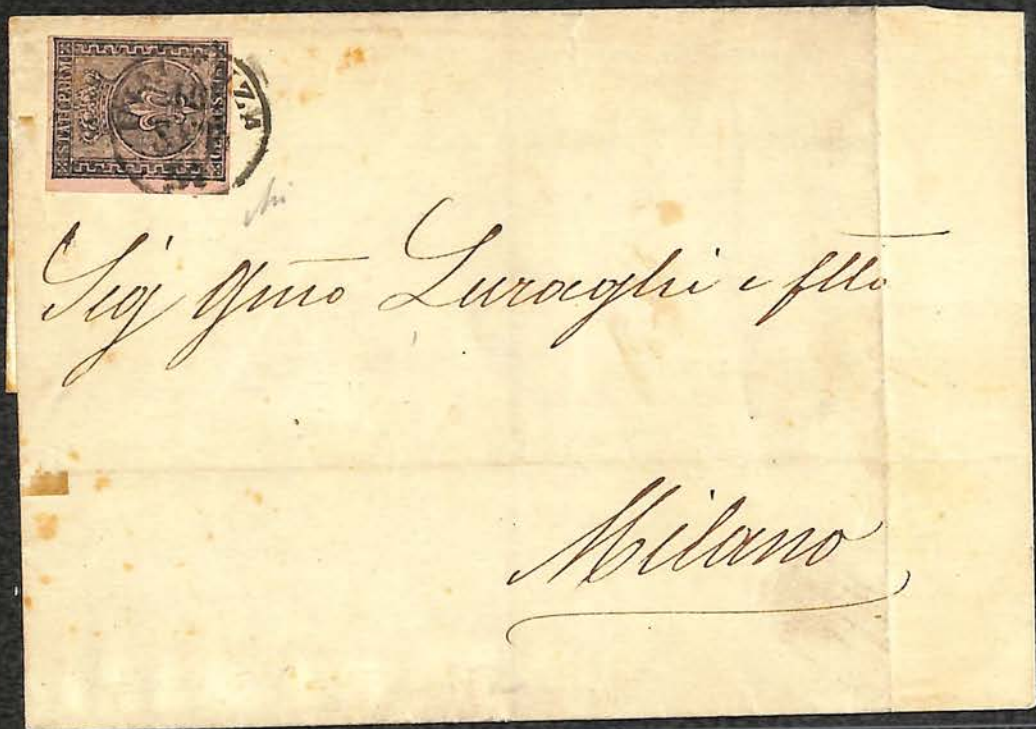 STATI PARM
Sig Gmo Luraghi e fllo
Milano